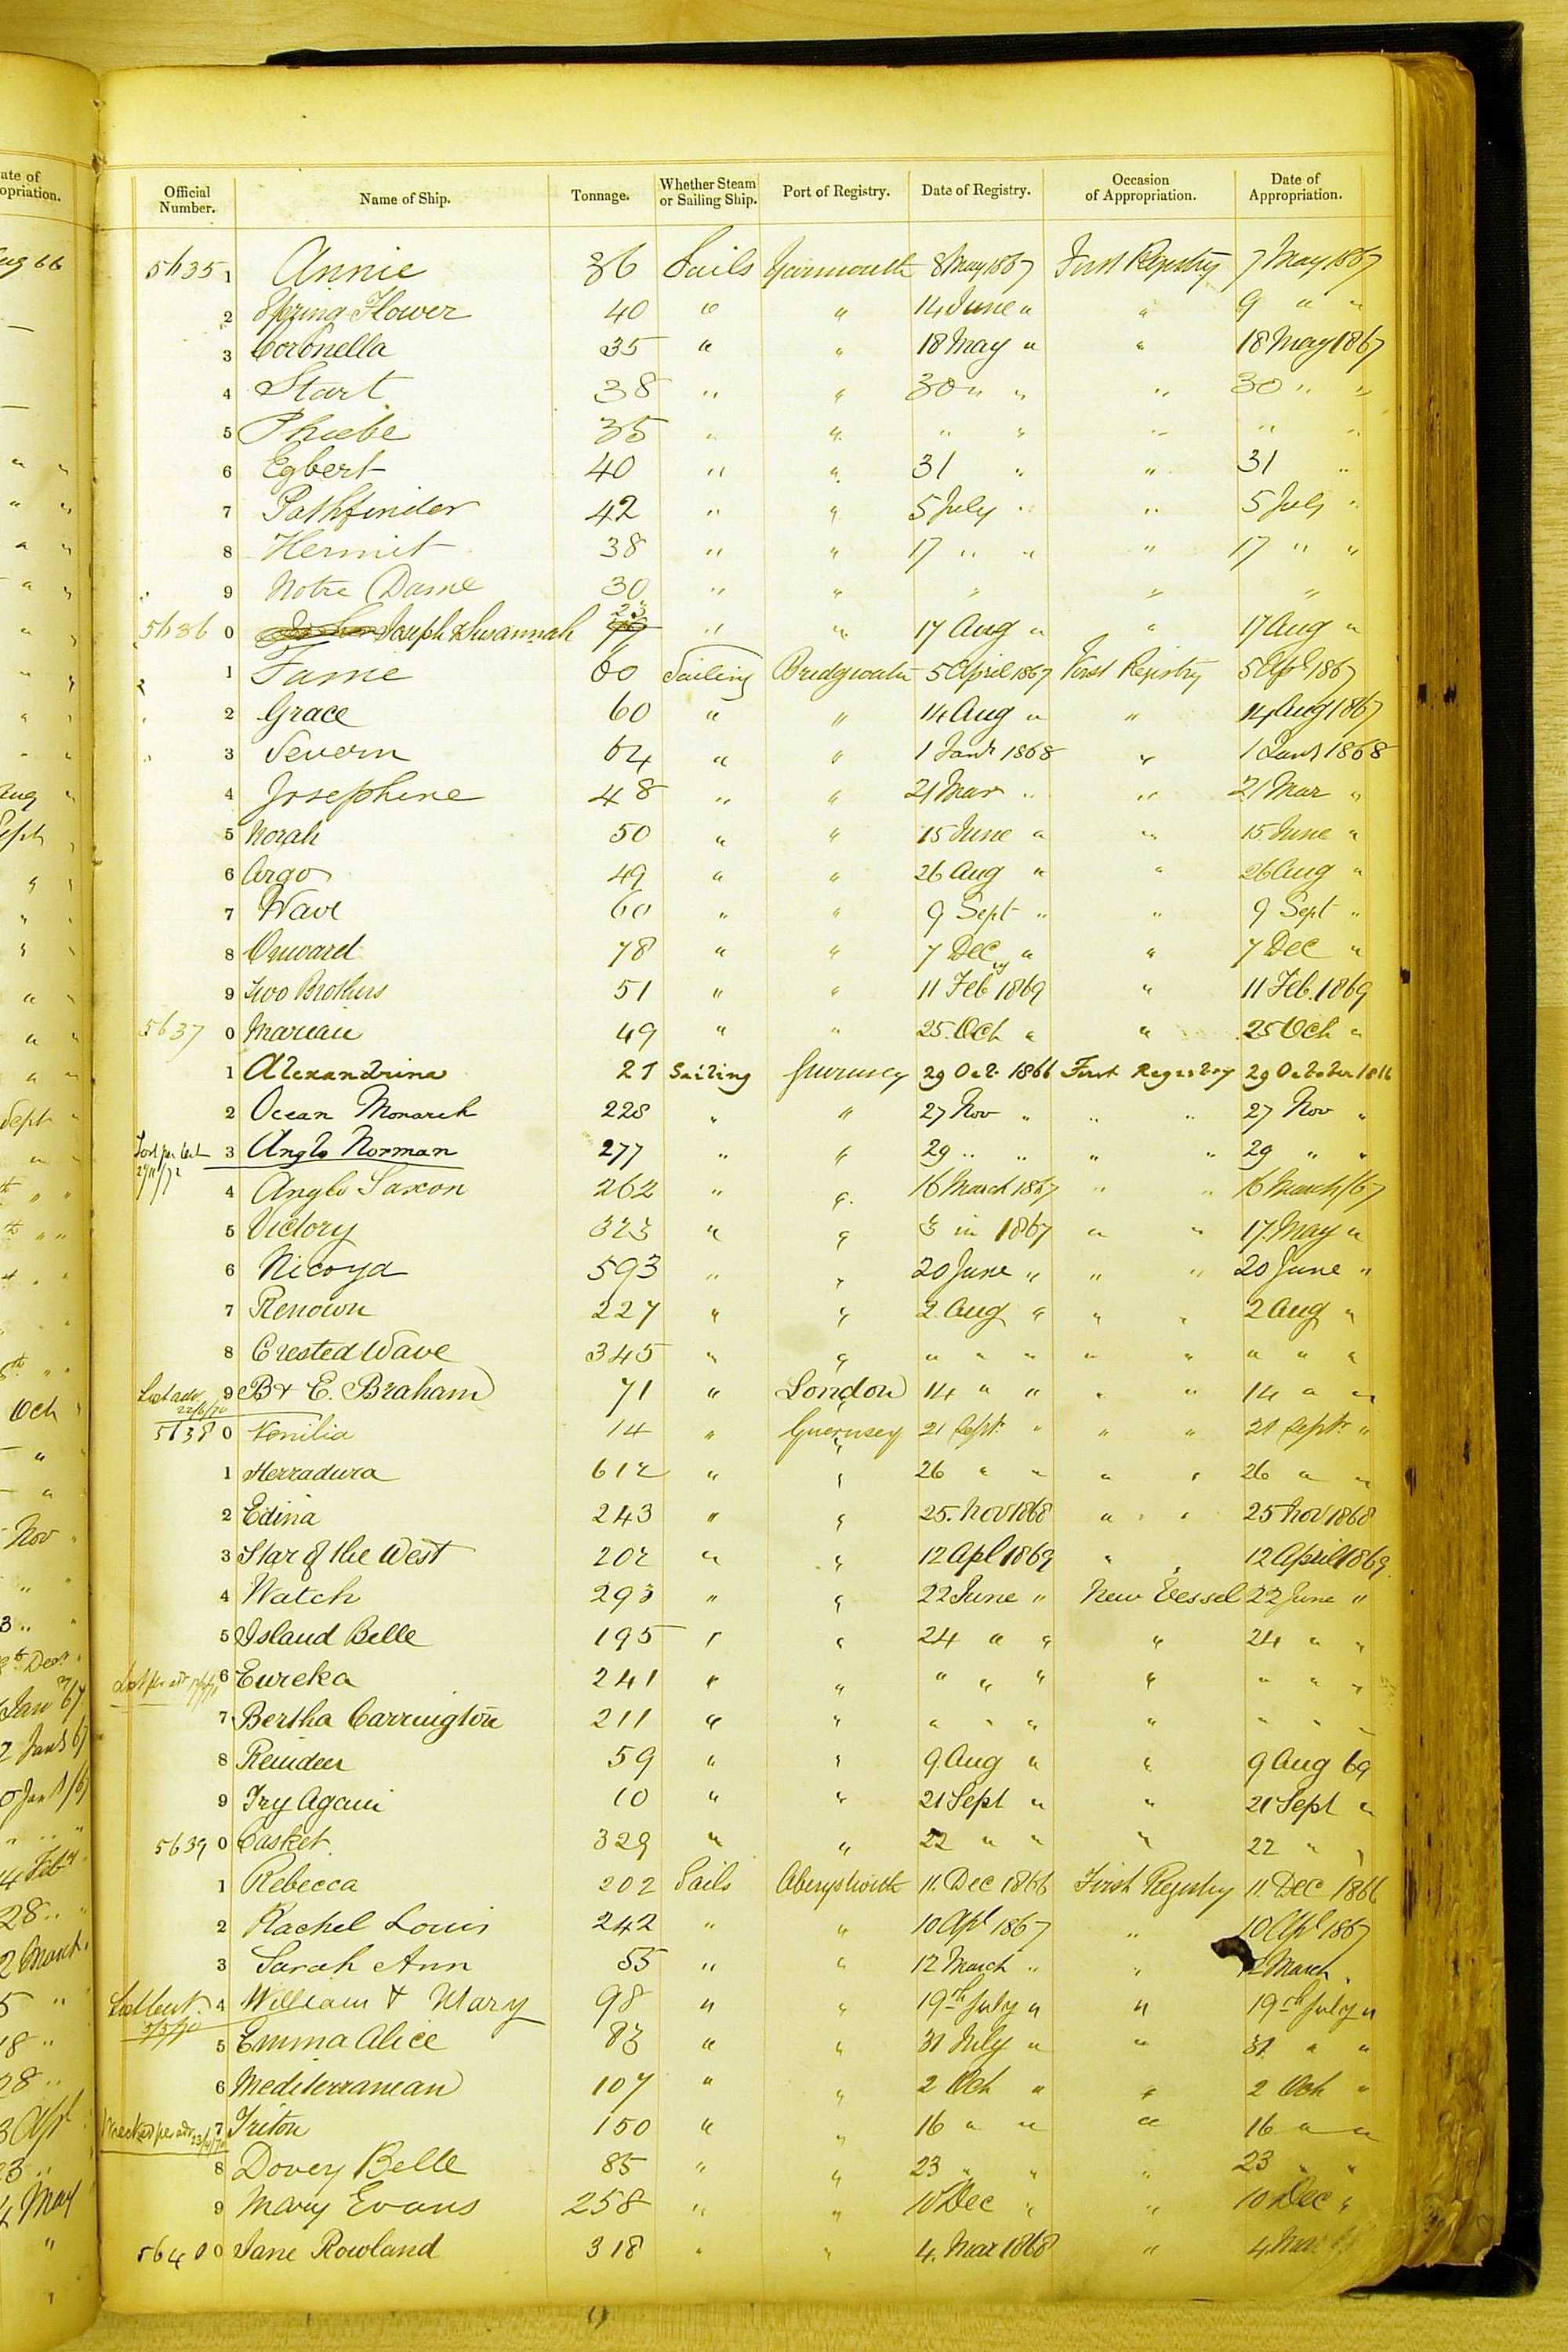 Official Number. Name of Ship. Tonnage. Whether Steam or Sailing Ship. Port of Registry. Date of Registry. Occasion of Appropriation. Date of Appropriation.
5635 1 Annie 36 Sails Yarmouth 8 May 1867 First Registry 7 May 1867
2 Spring Flower 40 " " 14 June " " 9 " "
3 Coronella 35 " " 18 May " " 18 May 1867
4 Start 38 " " 30 " " " 30 " "
5 Phoebe 35 " " " " " " "
6 Egbert 40 " " 31 " " 31 "
7 Pathfinder 42 " " 5 July " " 5 July "
8 Hermit 38 " " 17 " " " 17 " "
9 Notre Dame 30 " " " " "
5636 0 Joseph & Susannah 23 " " 17 Aug " " 17 Aug "
1 Fame 60 Sailing Bridgwater 5 April 1867 First Registry 5 Apl 1867
2 Grace 60 " " 14 Aug " " 14 Aug 1867
3 Severn 64 " " 1 Jany 1868 " 1 Jany 1868
4 Josephine 48 " " 21 Mar " " 21 Mar "
5 Norah 50 " " 15 June " " 15 June "
6 Argo 49 " " 26 Aug " " 26 Aug "
7 Wave 60 " " 9 Sept " " 9 Sept "
8 Onward 78 " " 7 Dec " " 7 Dec "
9 Two Brothers 51 " " 11 Feby 1869 " 11 Feb. 1869
5637 0 Marian 49 " " 25. Oct " " 25 Oct "
1 Alexandrina 27 Sailing Guernsey 29 Oct. 1866 First Registry 29 October 1866
2 Ocean Monarch 228 " " 27 Nov " " " 27 Nov "
Lost per cert 27/11/72 3 Anglo Norman 277 " " 29 " " " " 29 " "
4 Anglo Saxon 262 " " 16 March 1867 " " 16 March/67
5 Victory 323 " " 3 in 1867 " " 17. May "
6 Nicoya 593 " " 20 June " " " 20 June "
7 Renown 227 " " 2 Aug " " " 2 Aug "
8 Crested Wave 345 " " " " " " " " " "
Lost adv 22/6/70 9 B & E. Braham 71 " London 14 " " " " 14 " "
5638 0 Venilia 14 " Guernsey 21 Sept. " " " 21 Septr "
1 Herradura 612 " " 26 " " " " 26 " "
2 Edina 243 " " 25. Nov 1868 " " 25 Nov 1868
3 Star of the West 202 " " 12 Apl 1869 " " 12 April 1869.
4 Watch 293 " " 22 June " New Vessel 22 June "
5 Island Belle 195 " " 24 " " " 24 " "
Lost per adv 6 Eureka 241 " " " " " " " " "
7 Bertha Carrington 211 " " " " " " " " "
8 Reindeer 59 " " 9. Aug " " 9 Aug 69
9 Try Again 10 " " 21 Sept " " 21 Sept "
5639 0 Casket 329 " " 22 " " " 22 " "
1 Rebecca 202 Sails Aberystwith 11. Dec 1866 First Registry 11. Dec 1866
2 Rachel Louis 242 " " 10 Apl 1867 " 10 Apl 1867
3 Sarah Ann 55 " " 12 March " " 12 March "
Lost Cert. 5/5/70 4 William & Mary 98 " " 19th July " " 19th July "
5 Emma Alice 83 " " 31 July " " 31 " "
6 Mediterranean 107 " " 2 Oct " " 2 Oct "
Wrecked per adv 23/4/70 7 Triton 150 " " 16 " " " 16 " "
8 Dovey Belle 85 " " 23 " " " 23 " "
9 Mary Evans 258 " " 10 Dec " " 10 Dec "
56400 0 Jane Rowland 318 " " 4. Mar 1868 " 4. Mar